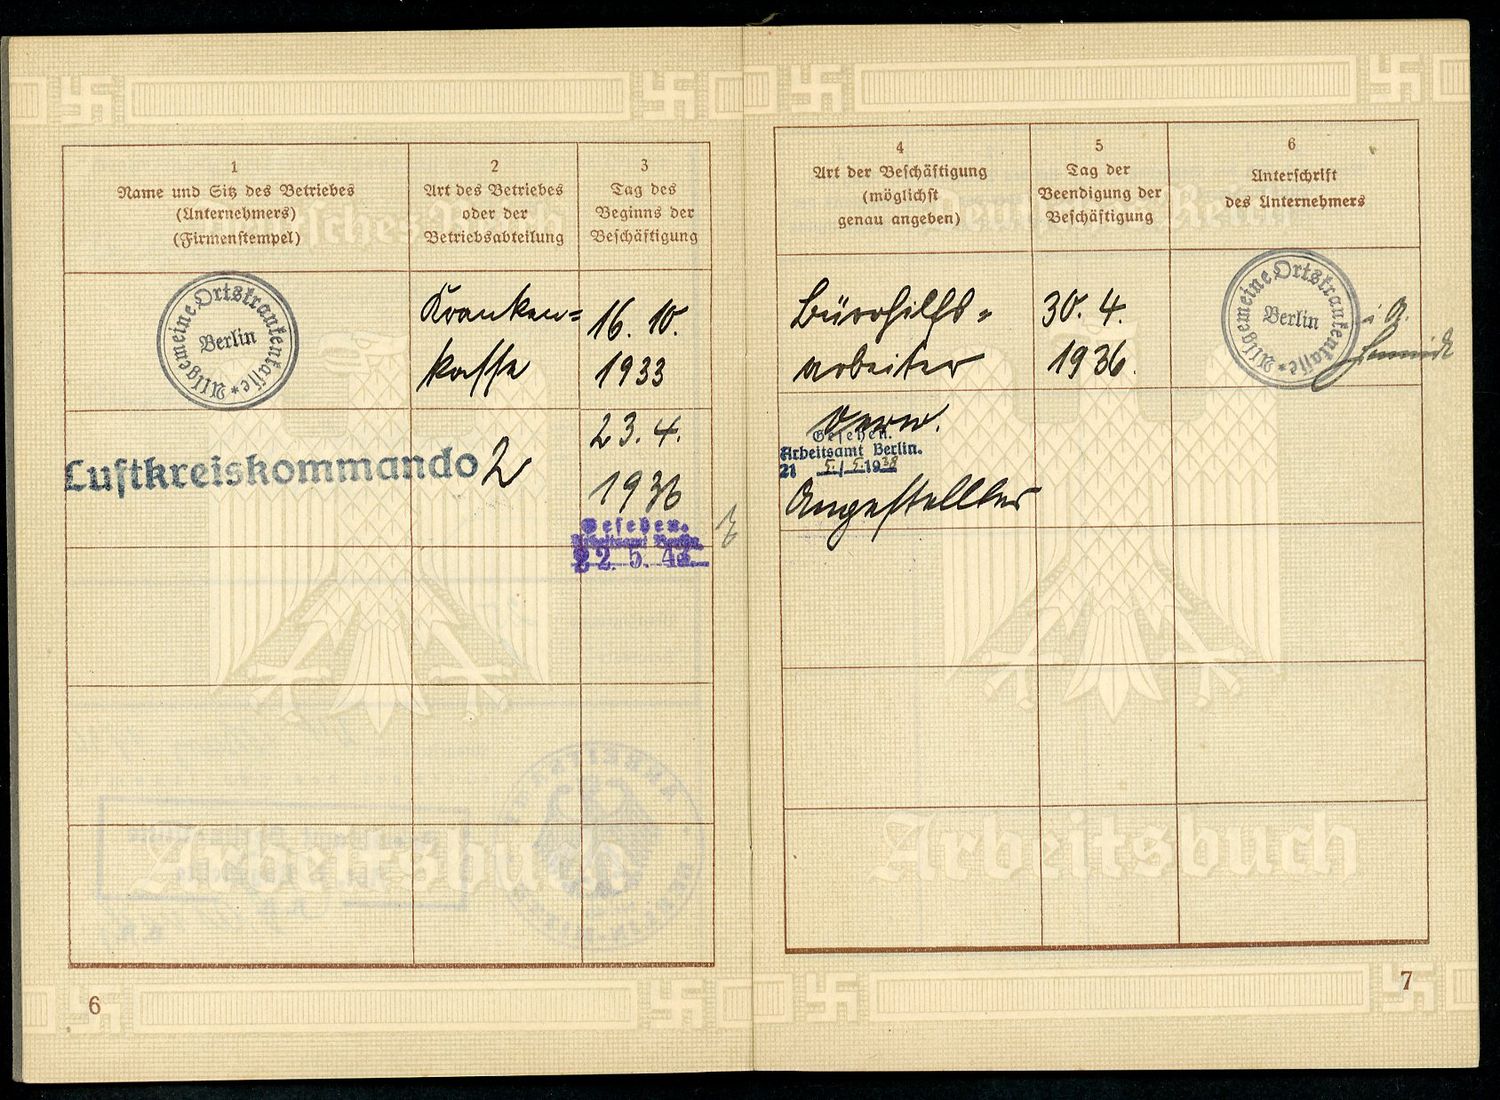 1
Name und Sitz des Betriebes
(Unternehmers)
(Firmenstempel)
2
Art des Betriebes
oder der
Betriebsabteilung
3
Tag des
Beginns der
Beschäftigung
Allgemeine Ortskrankenkasse *
Berlin
Kranken=
kasse
16. 10.
1933
Luftkreiskommando 2
23. 4.
1936
Gesehen.
Arbeitsamt Berlin.
22. 5. 42
Arbeitsbuch
6
4
Art der Beschäftigung
(möglichst
genau angeben)
5
Tag der
Beendigung der
Beschäftigung
6
Unterschrift
des Unternehmers
Bürohilfs-
arbeiter
30. 4.
1936.
Allgemeine Ortskrankenkasse *
Berlin
i. A.
Verw.
Gesehen.
Arbeitsamt Berlin.
21 5/5 1938
Angestellter
Arbeitsbuch
7